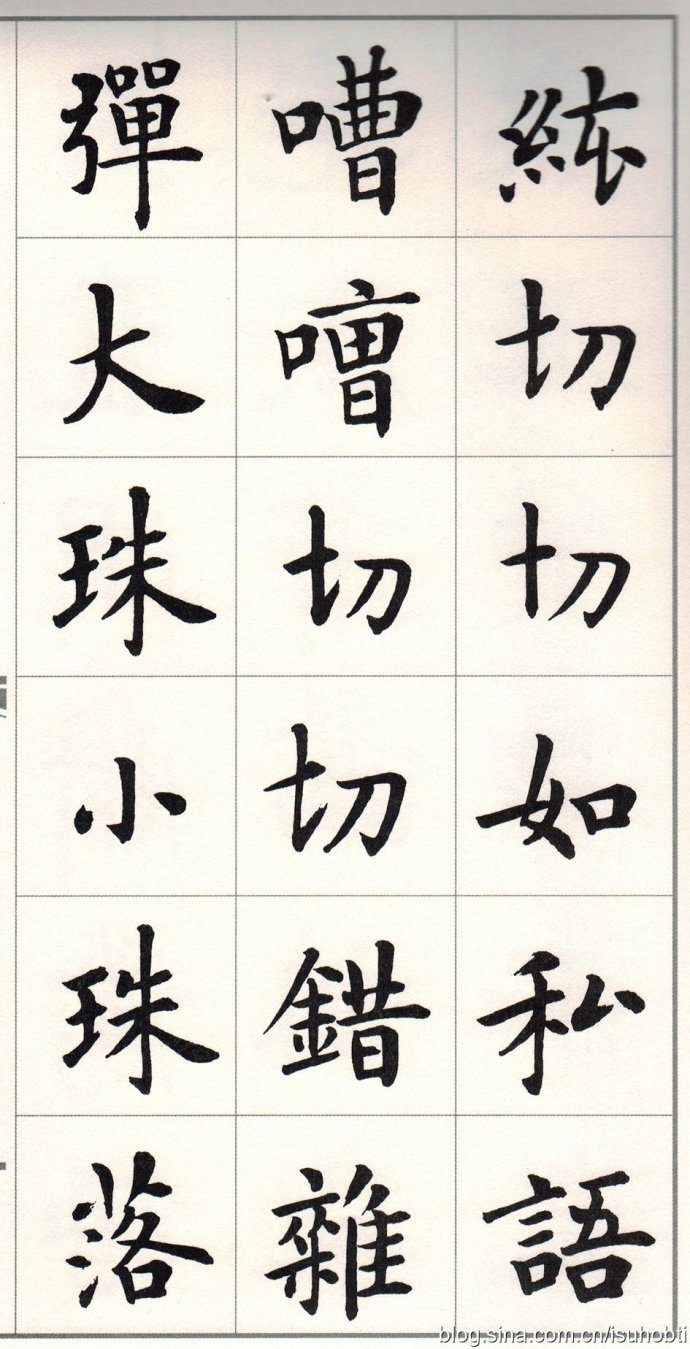 絃切切如私語
嘈嘈切切錯雜
彈大珠小珠落
blog.sina.com.cn/isuhobti